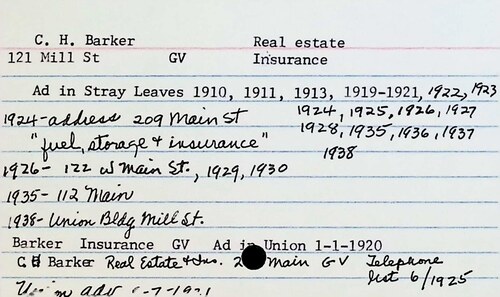 C. H. Barker Real estate
121 Mill St GV Insurance
Ad in Stray Leaves 1910, 1911, 1913, 1919-1921, 1922, 1923
1924, 1925, 1926, 1927
1924-address 209 Main St
1928, 1935, 1936, 1937
"fuel, storage + insurance"
1938
1926- 122 W Main St., 1929, 1930
1935- 112 Main
1938- Union Bldg Mill St.
Barker Insurance GV Ad in Union 1-1-1920
C H Barker Real Estate + Ins. Main GV Telephone
list 6/1925
Union adv